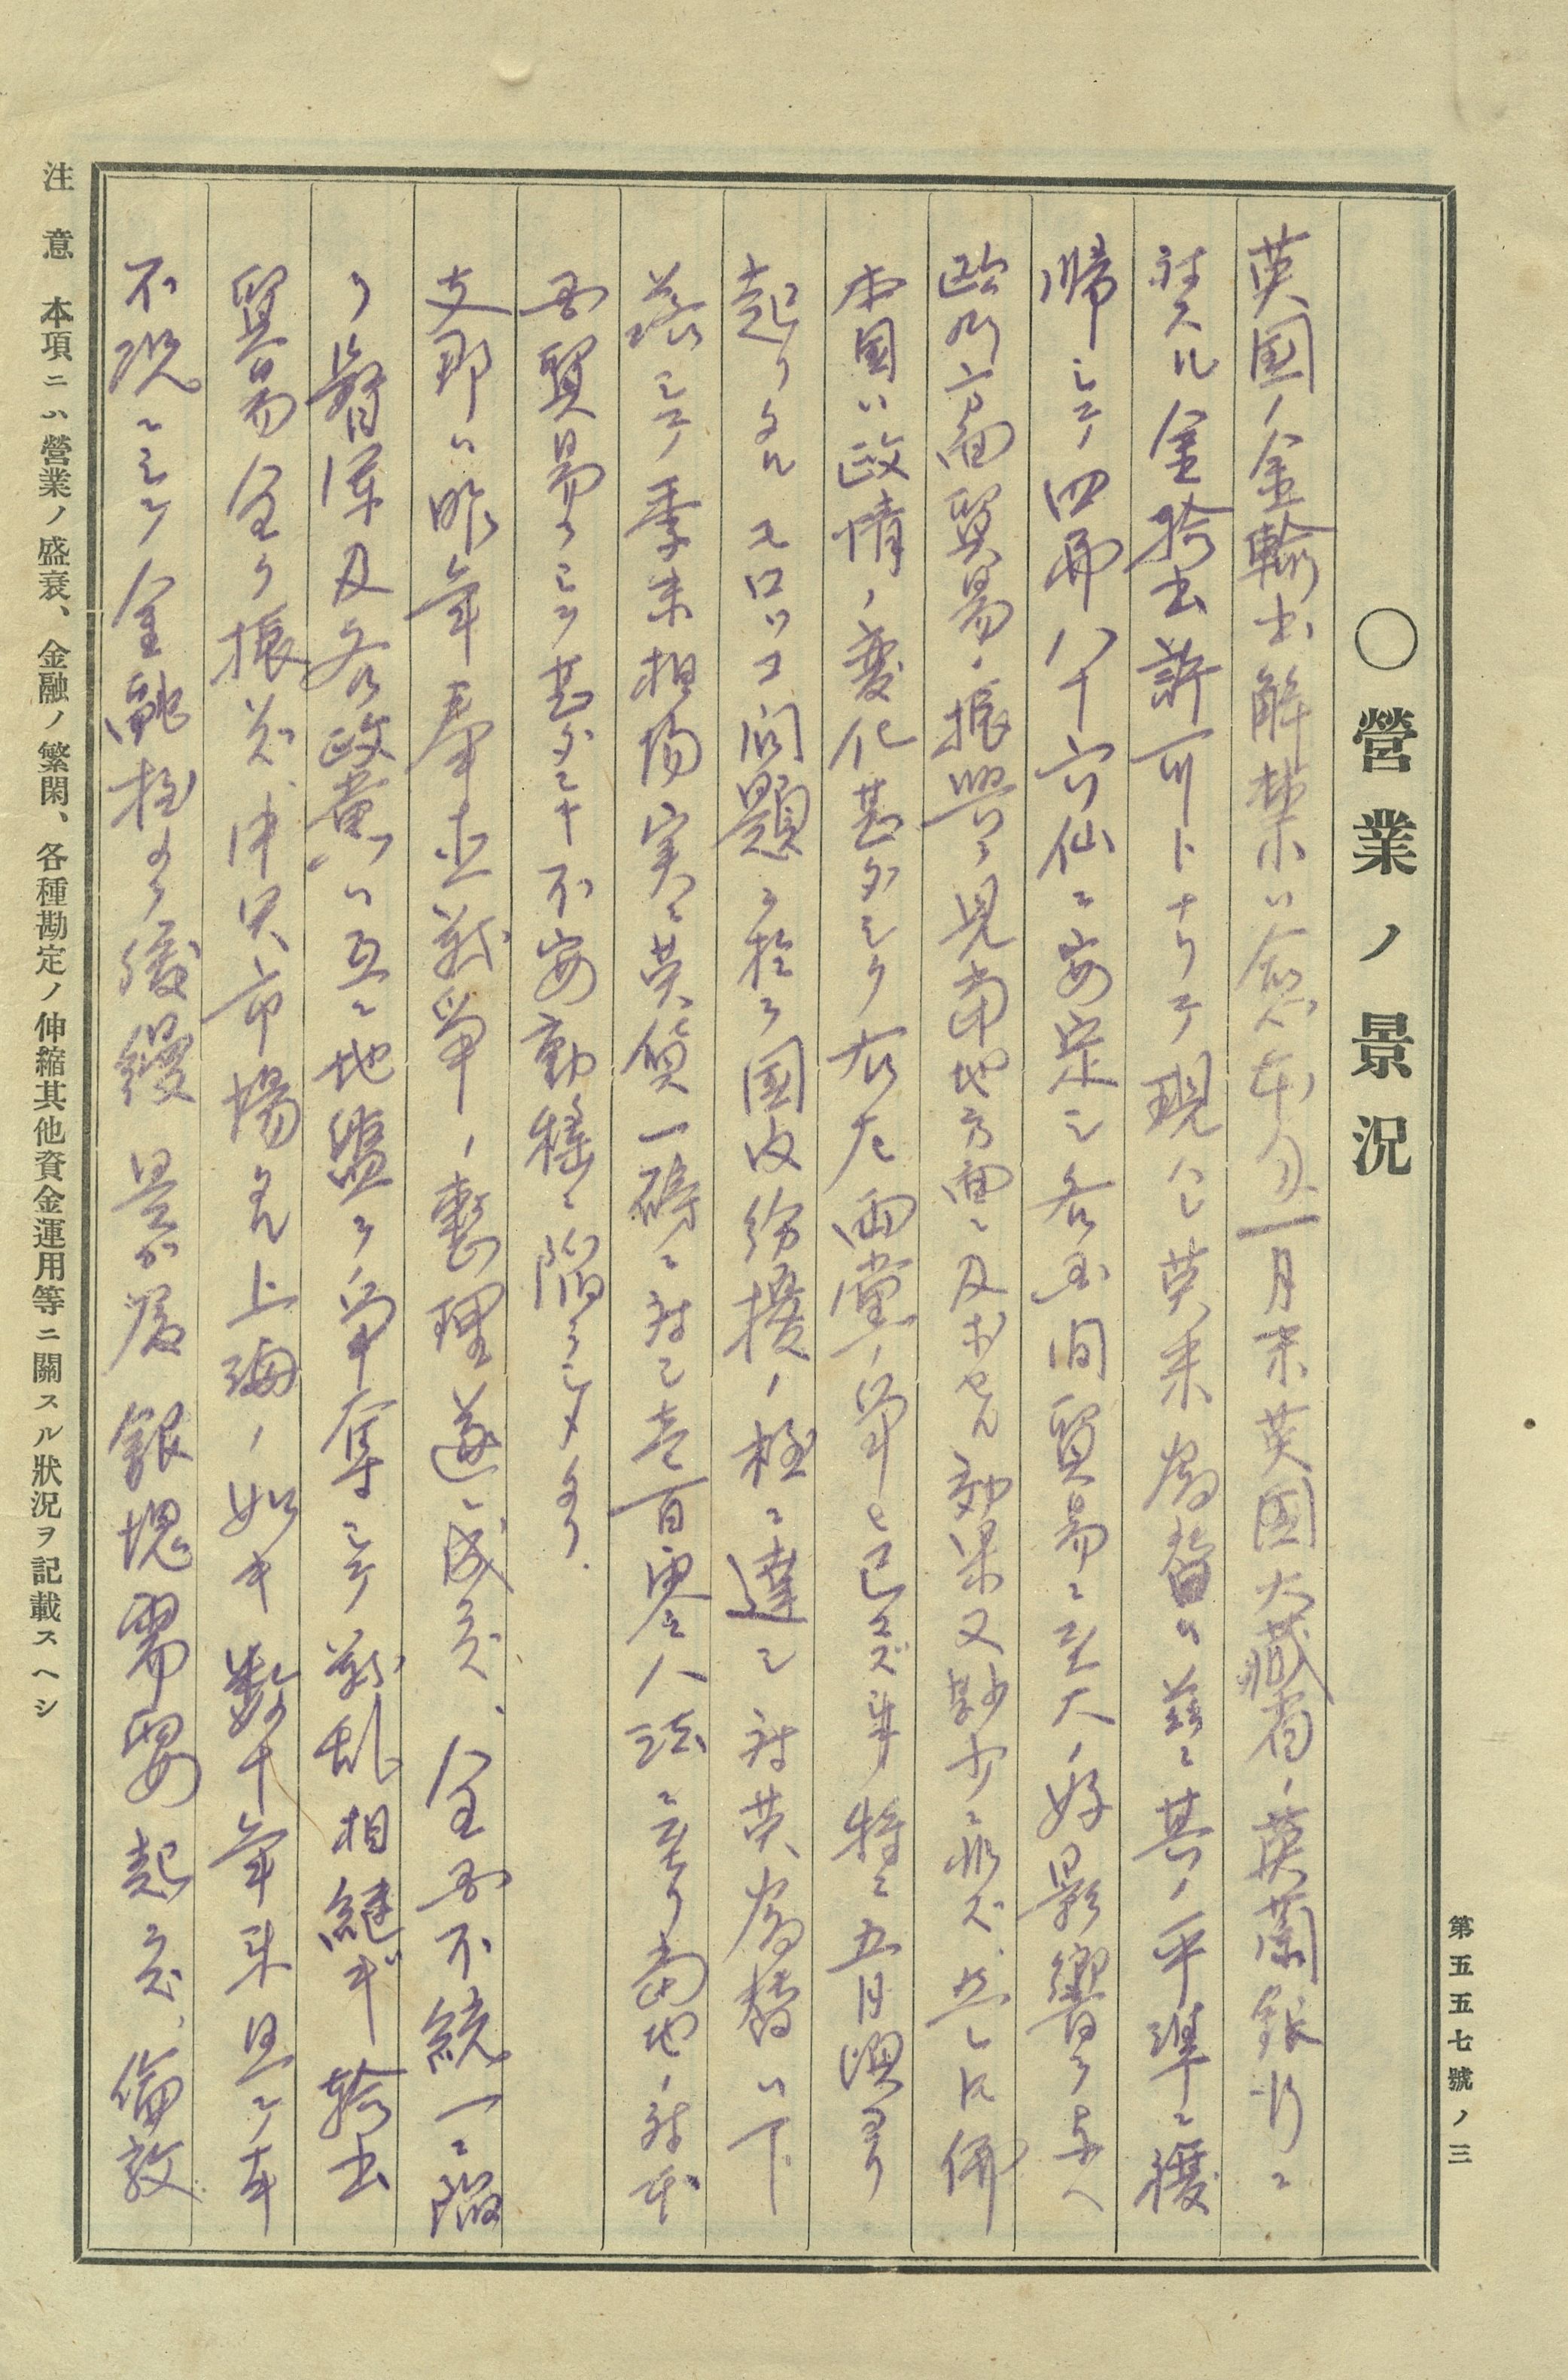 第五五七號ノ三
〇營業ノ景況
英国ノ金輸出解禁ハ愈本年一月末英国大藏省ノ英蘭銀行ニ
対スル金輸出許可トナリテ現ハレ英米為替ハ茲ニ其ノ平準ニ復
帰シテ四弗八十六仙ニ安定シ各国間貿易ニ至大ノ好影響ヲ与ヘ
欧洲方面貿易ノ振興ヲ見当地方面ニ及ボセル効果又尠少ニ非ズ、然レ共佛
本国ハ政情ノ変化甚ダシク右左両党ノ争ヒ已マズ 特ニ五月頃ヨリ
起リタルモロツコ問題ヲ於テ国内紛擾ノ極ニ達シ対英為替ハ下
落シテ季末相場実ニ英貨一磅ニ対シ壱百零八法ニ至リ当地ノ対本
国貿易ヲシテ甚ダシキ不安動揺ニ陥ラシメタリ.
支那ハ昨年奉直戦争ノ整理遂ニ成ラズ、全国不統一ニ陥
リ督軍及各政黨ハ互ニ地盤ヲ争奪シテ戦乱相継ギ輸出
貿易全ク振ハズ、中央市場タル上海ノ如キ数十年来見ザル
不況ニシテ金融極メテ緩慢 銀塊需要起ラズ、倫敦
注意 本項ニハ營業ノ盛衰、金融ノ繁閑、各種勘定ノ伸縮其他資金運用等ニ關スル狀況ヲ記載スヘシ